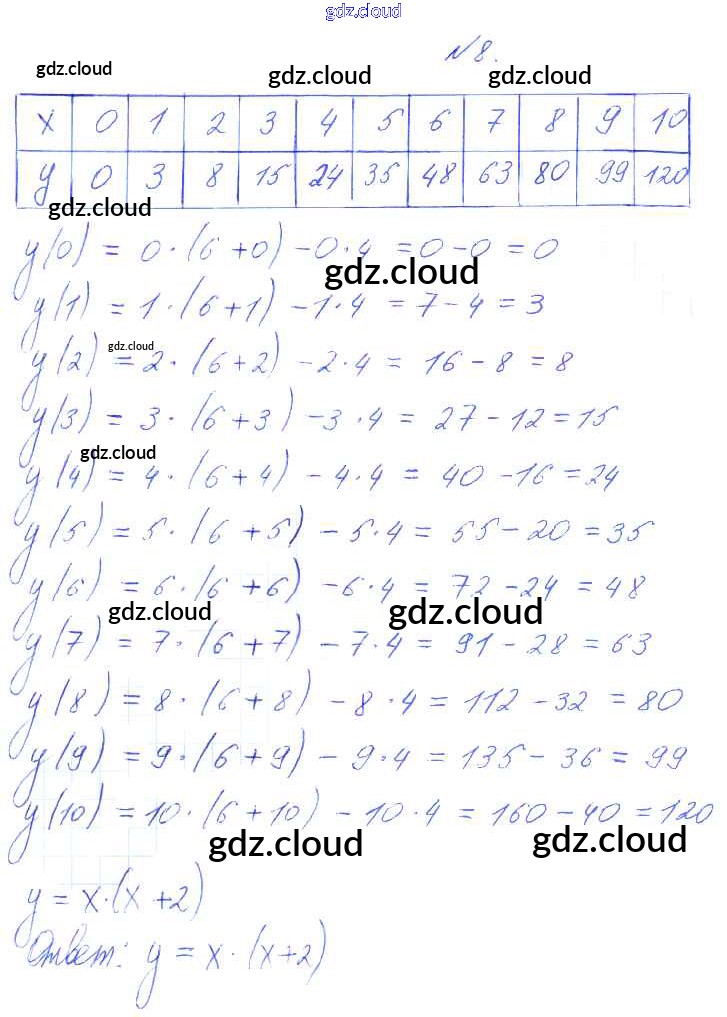 gdz.cloud
№8.
gdz.cloud gdz.cloud gdz.cloud
x 0 1 2 3 4 5 6 7 8 9 10
y 0 3 8 15 24 35 48 63 80 99 120
gdz.cloud
y(0) = 0·(6+0) - 0·4 = 0-0 = 0
gdz.cloud
y(1) = 1·(6+1) - 1·4 = 7-4 = 3
gdz.cloud
y(2) = 2·(6+2) - 2·4 = 16-8 = 8
y(3) = 3·(6+3) - 3·4 = 27-12 = 15
gdz.cloud
y(4) = 4·(6+4) - 4·4 = 40-16 = 24
y(5) = 5·(6+5) - 5·4 = 55-20 = 35
y(6) = 6·(6+6) - 6·4 = 72-24 = 48
gdz.cloud gdz.cloud
y(7) = 7·(6+7) - 7·4 = 91-28 = 63
y(8) = 8·(6+8) - 8·4 = 112-32 = 80
y(9) = 9·(6+9) - 9·4 = 135-36 = 99
y(10) = 10·(6+10) - 10·4 = 160-40 = 120
gdz.cloud gdz.cloud
y = x·(x+2)
Ответ: y = x·(x+2)